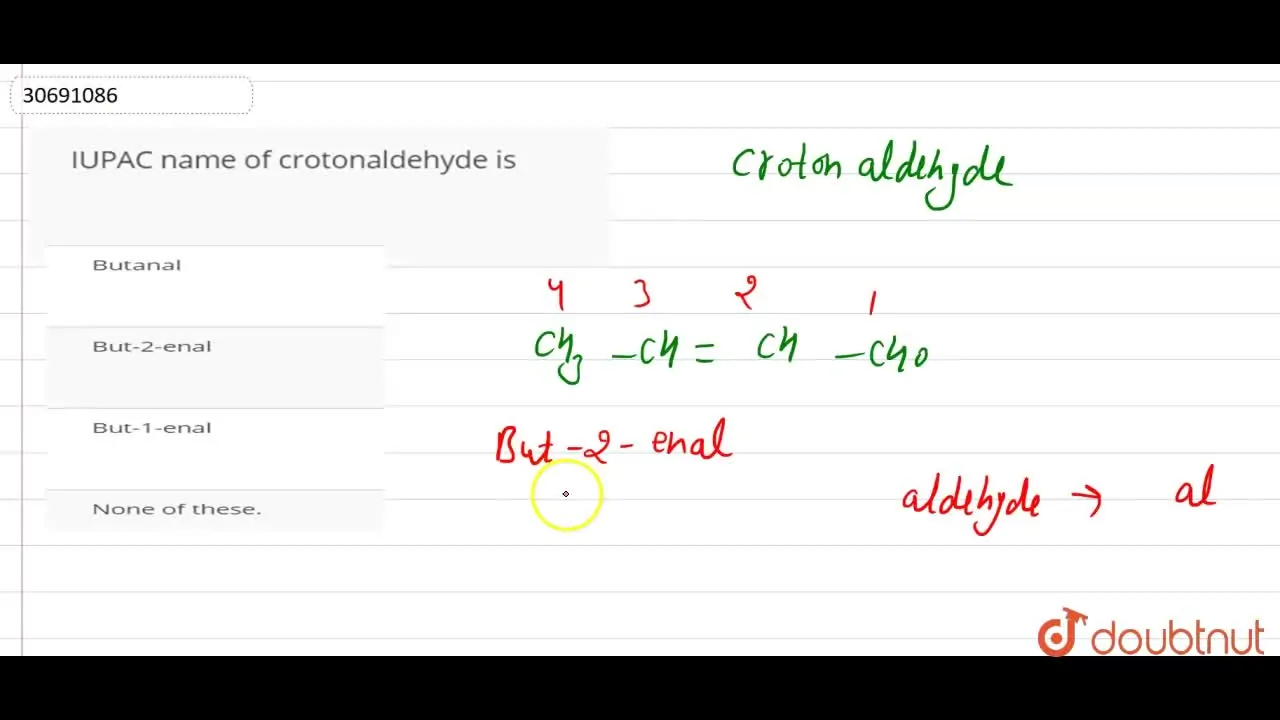 30691086
IUPAC name of crotonaldehyde is
Croton aldehyde
Butanal
4 3 2 1
But-2-enal
CH3 – CH = CH – CHO
But-1-enal
But - 2 - enal
None of these.
aldehyde → al
doubtnut